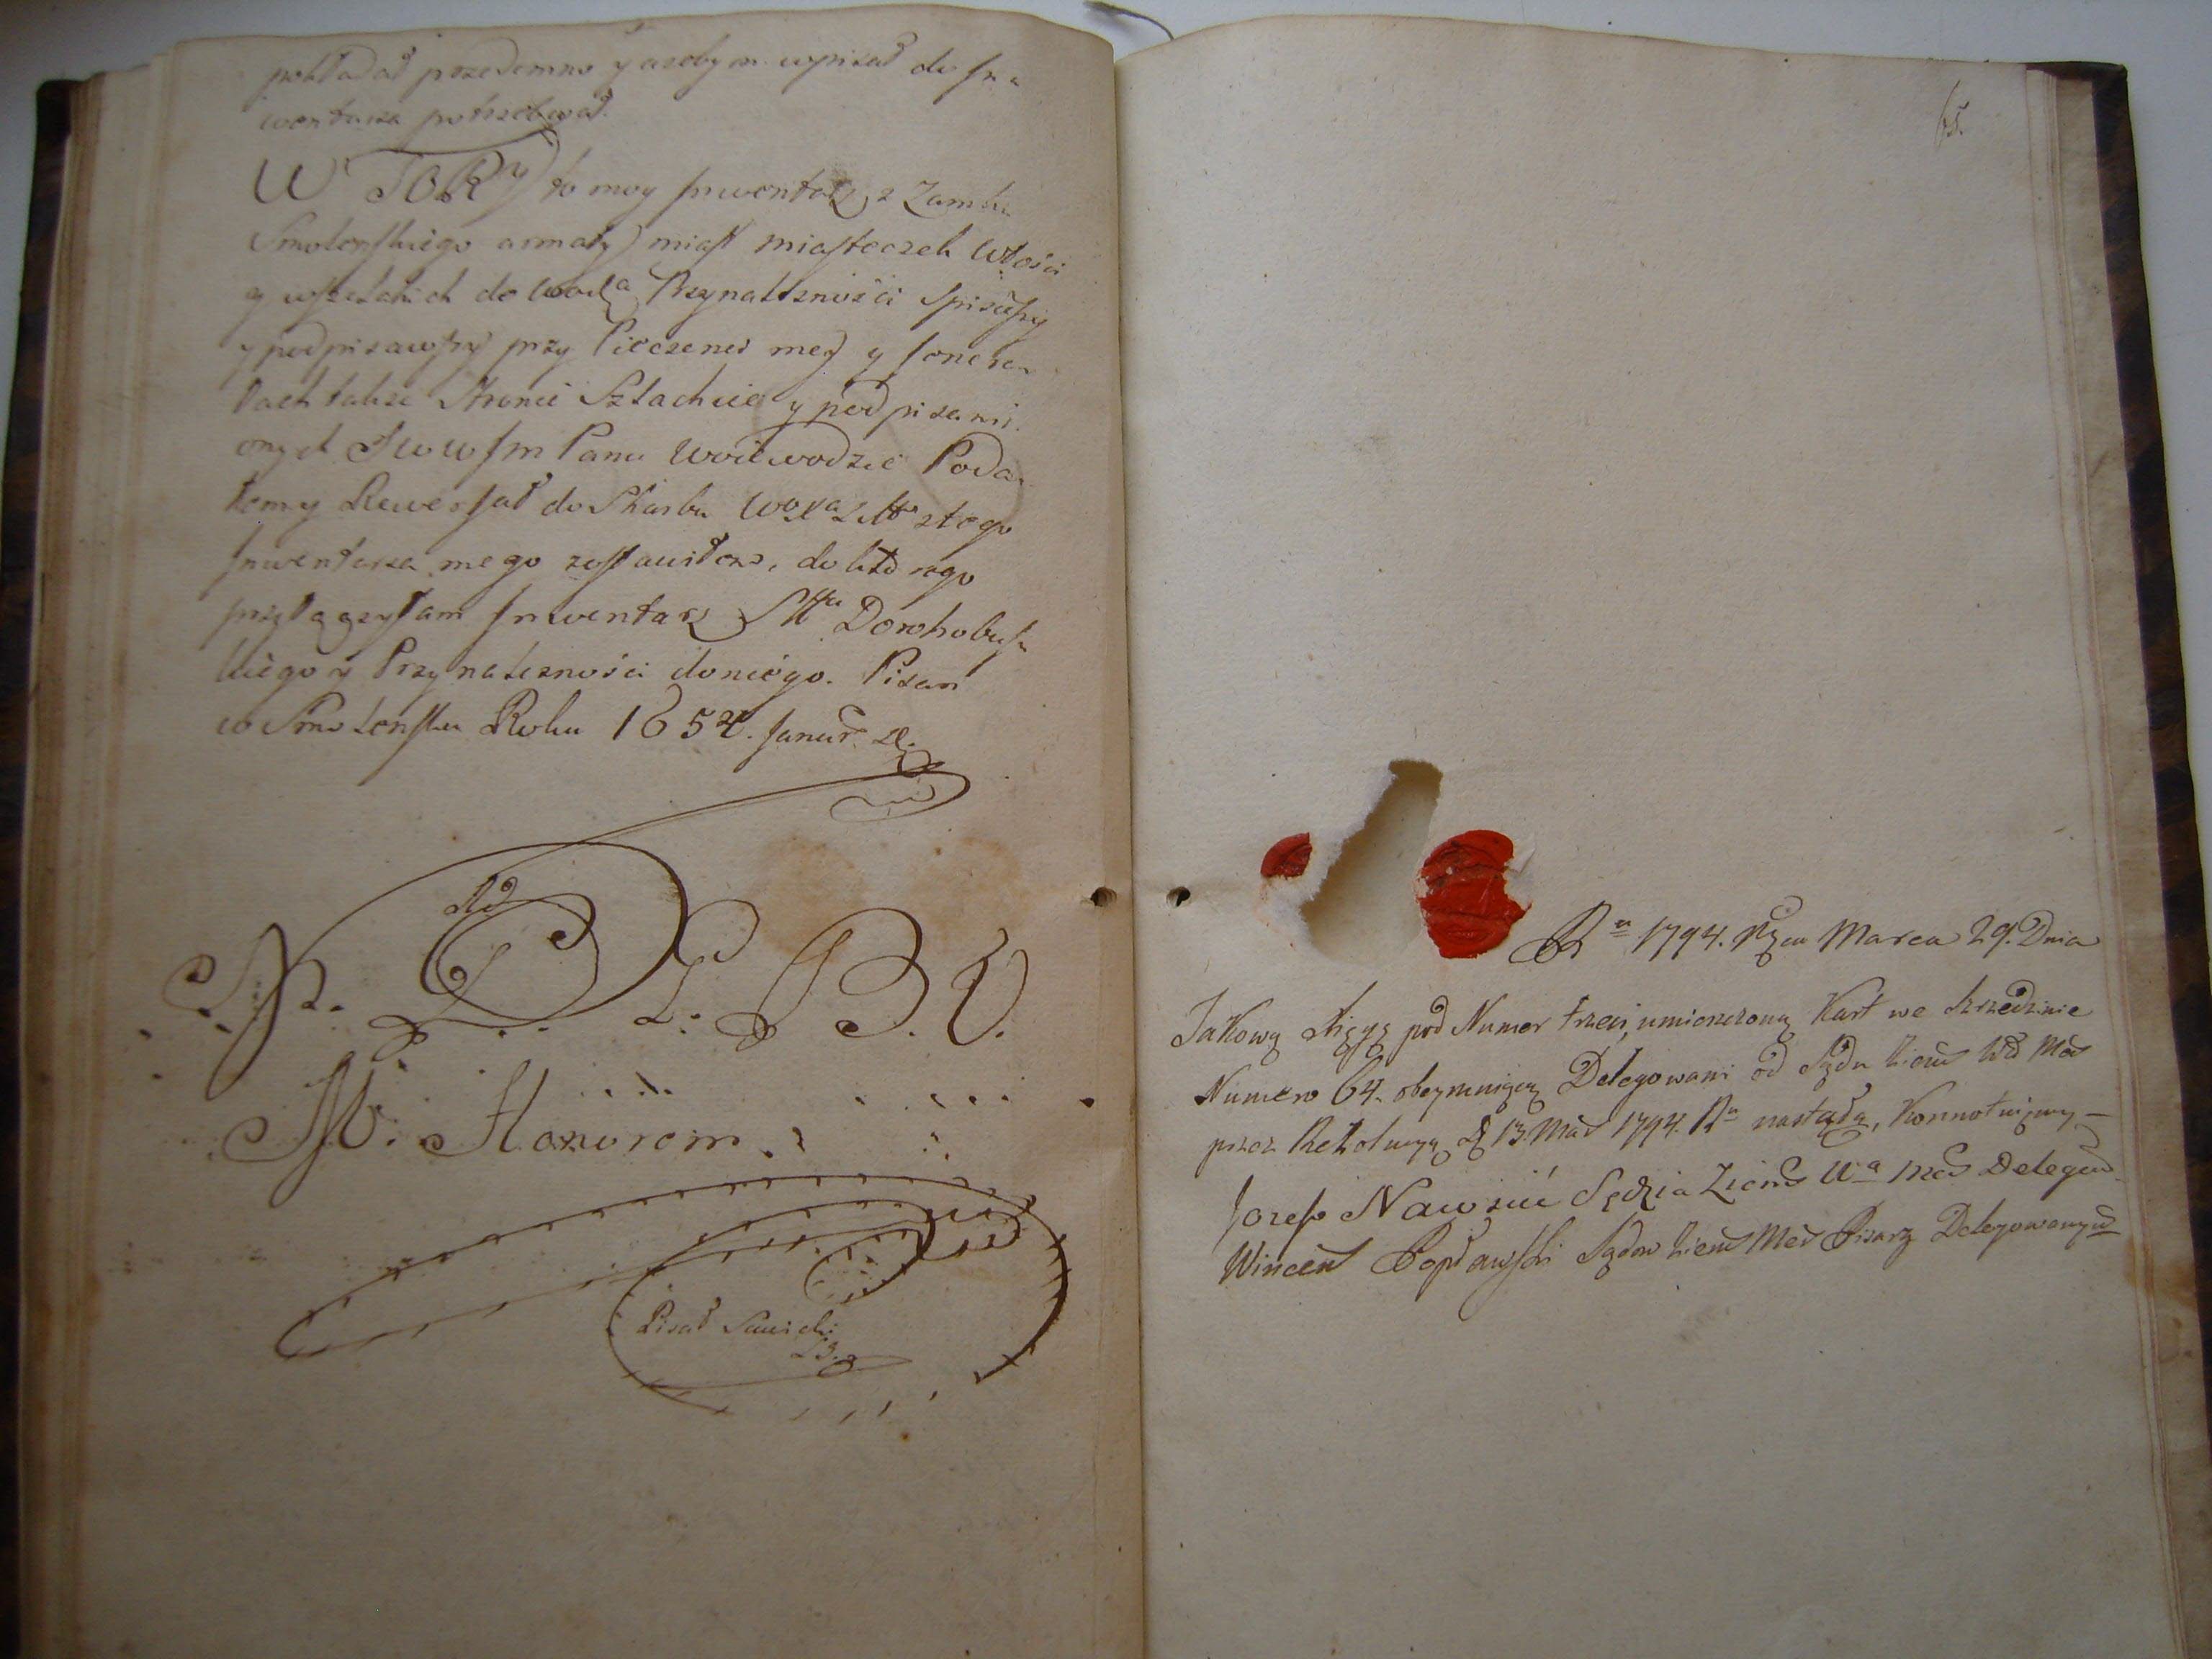 pokładał przedemno y azebym wpisał do Jn=
wentarza potrzebował.
WTORY to moy Jnwentarz z Zamku
Smolenskiego armaty miast miasteczek Włości
y wszelakich do Woiła Przynależności Spisawszy
y podpisawszy przy Pieczeniei mey y
także Stronie Szlachcie y podpisanii
onych JWW Jm Panu Woiewodzie Poda=
łemy Rewersał do Skarbu WoXaLitto z tego
Jnwentarza mego zostawiłem, do którego
przyłączyłam Jnwentarz Sttu Dorohobus=
kiego y Przynależności do niego. Pisan
w Smolensku Roku 1654. Januar.
Ad
L: B. V.
M. Honorem
Pisał Sawicki
65.
Ru 1794. Mca Marca 29. Dnia
Jakową Xięgę pod Numer trzeci, umieszczoną Kart we szrzedzinie
Numero 64. obeymuiącą Delegowani od Sądu Ziem Wo Mco
przez Rezolucyą D 13. Mar 1794. Ru nastałą, Konnotuiemy —
Jozef Nawsuć Sędzia Ziems Wa Mco Delegow
Wincent Popławski Sądow Ziem Mco Pisarz Delegowany